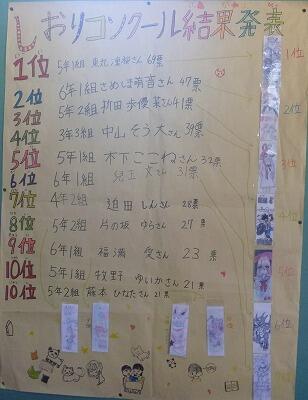 しおりコンクール結果発表
1位 5年1組 さん 69票
2位 6年1組 さめしま萌音さん 47票
3位 5年2組 折田 歩優菜さん 41票
4位 3年3組 中山 そう大さん 39票
5位 5年1組 木下 ここねさん 32票
6位 6年1組 さん 31票
7位 4年2組 迫田 しんさん 28票
8位 5年2組 片の坂 ゆらさん 27票
9位 6年1組 福満 愛さん 23票
10位 5年1組 牧野 ゆいかさん 21票
10位 5年2組 藤本 ひなたさん 21票
1位
2位
3位
4位
5位
6位